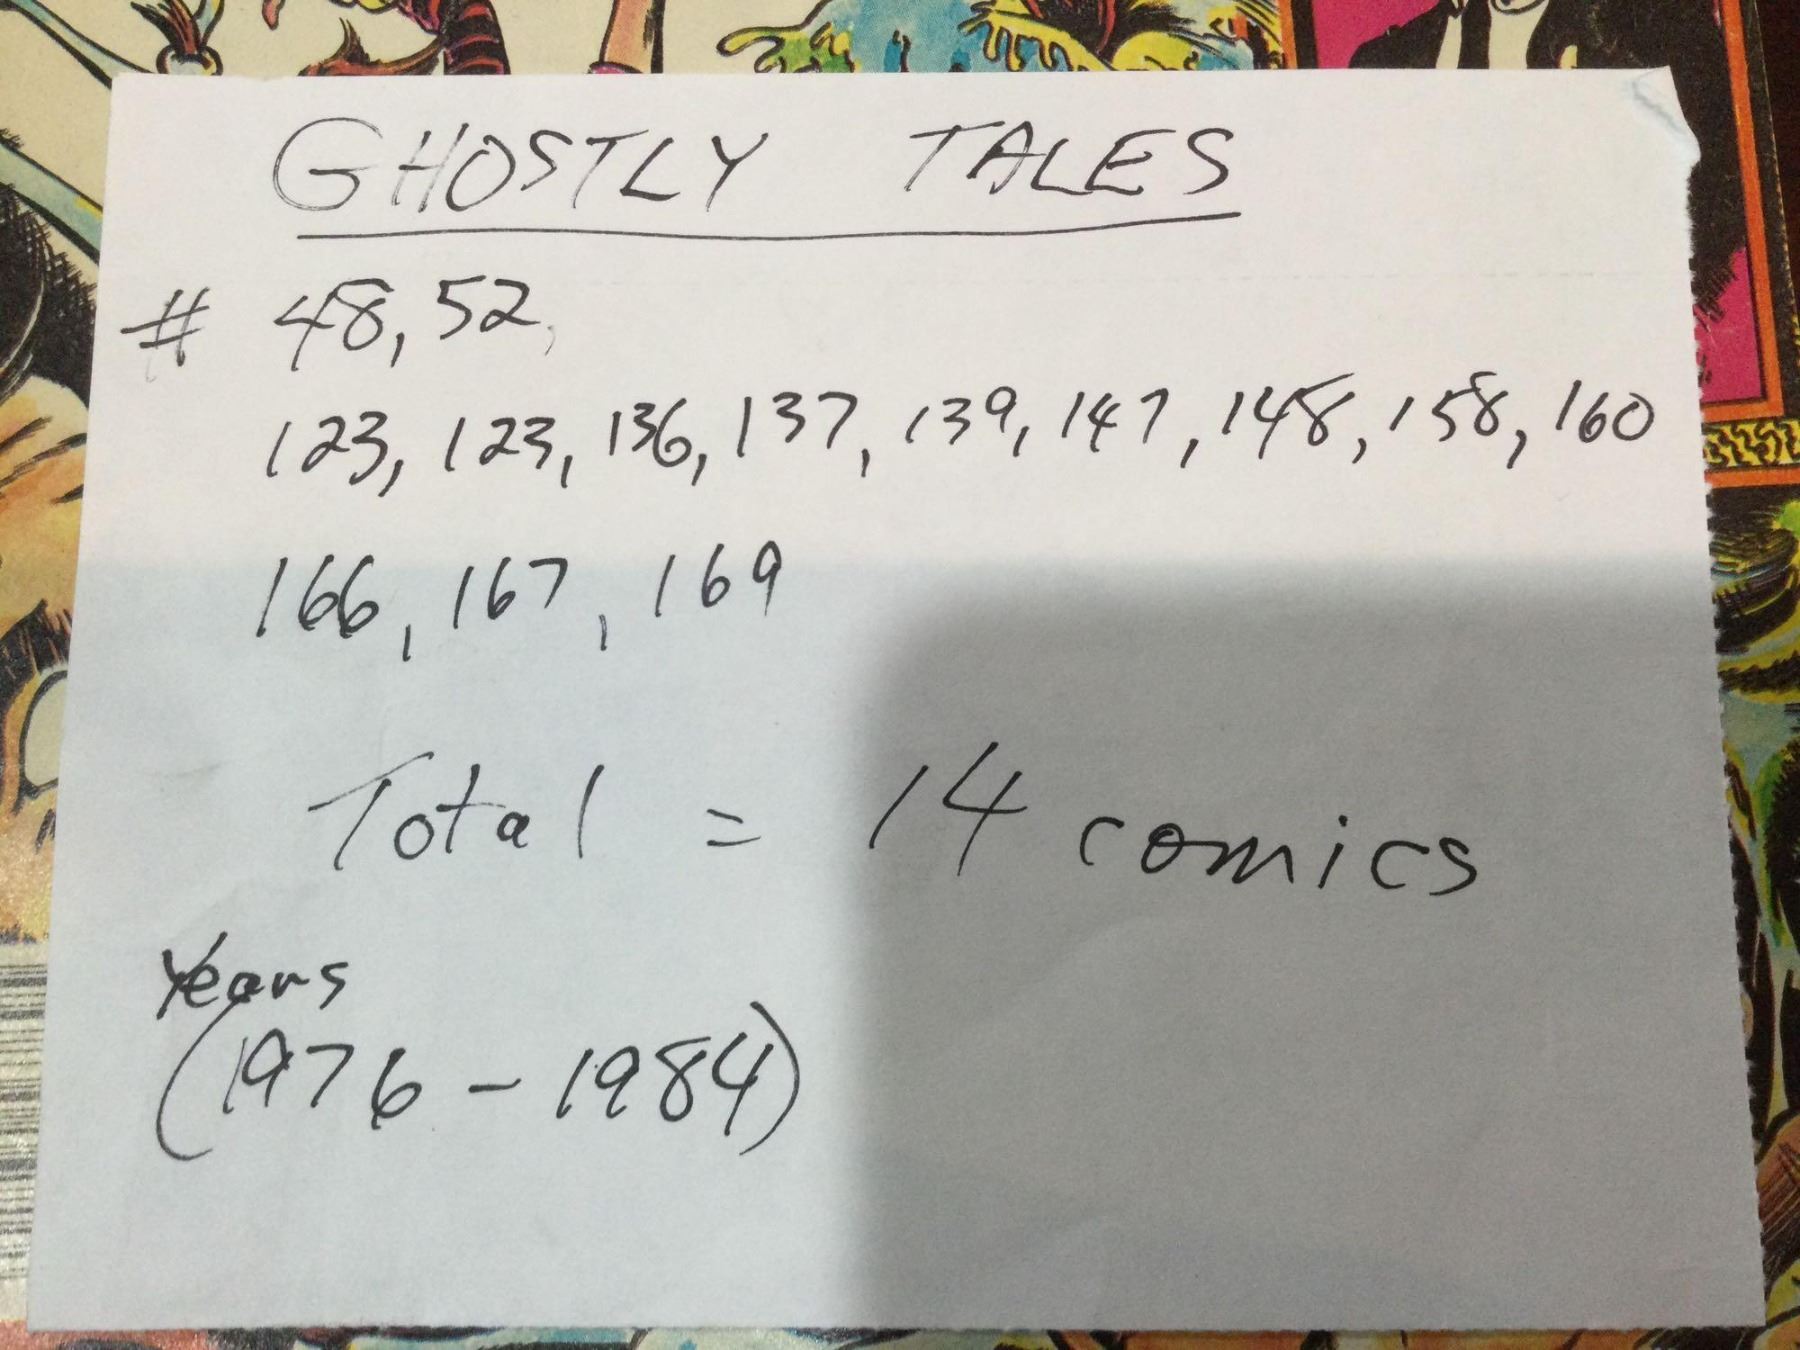 GHOSTLY TALES
# 48, 52,
123, 123, 136, 137, 139, 147, 148, 158, 160
166, 167, 169
Total = 14 comics
Years
(1976 - 1984)